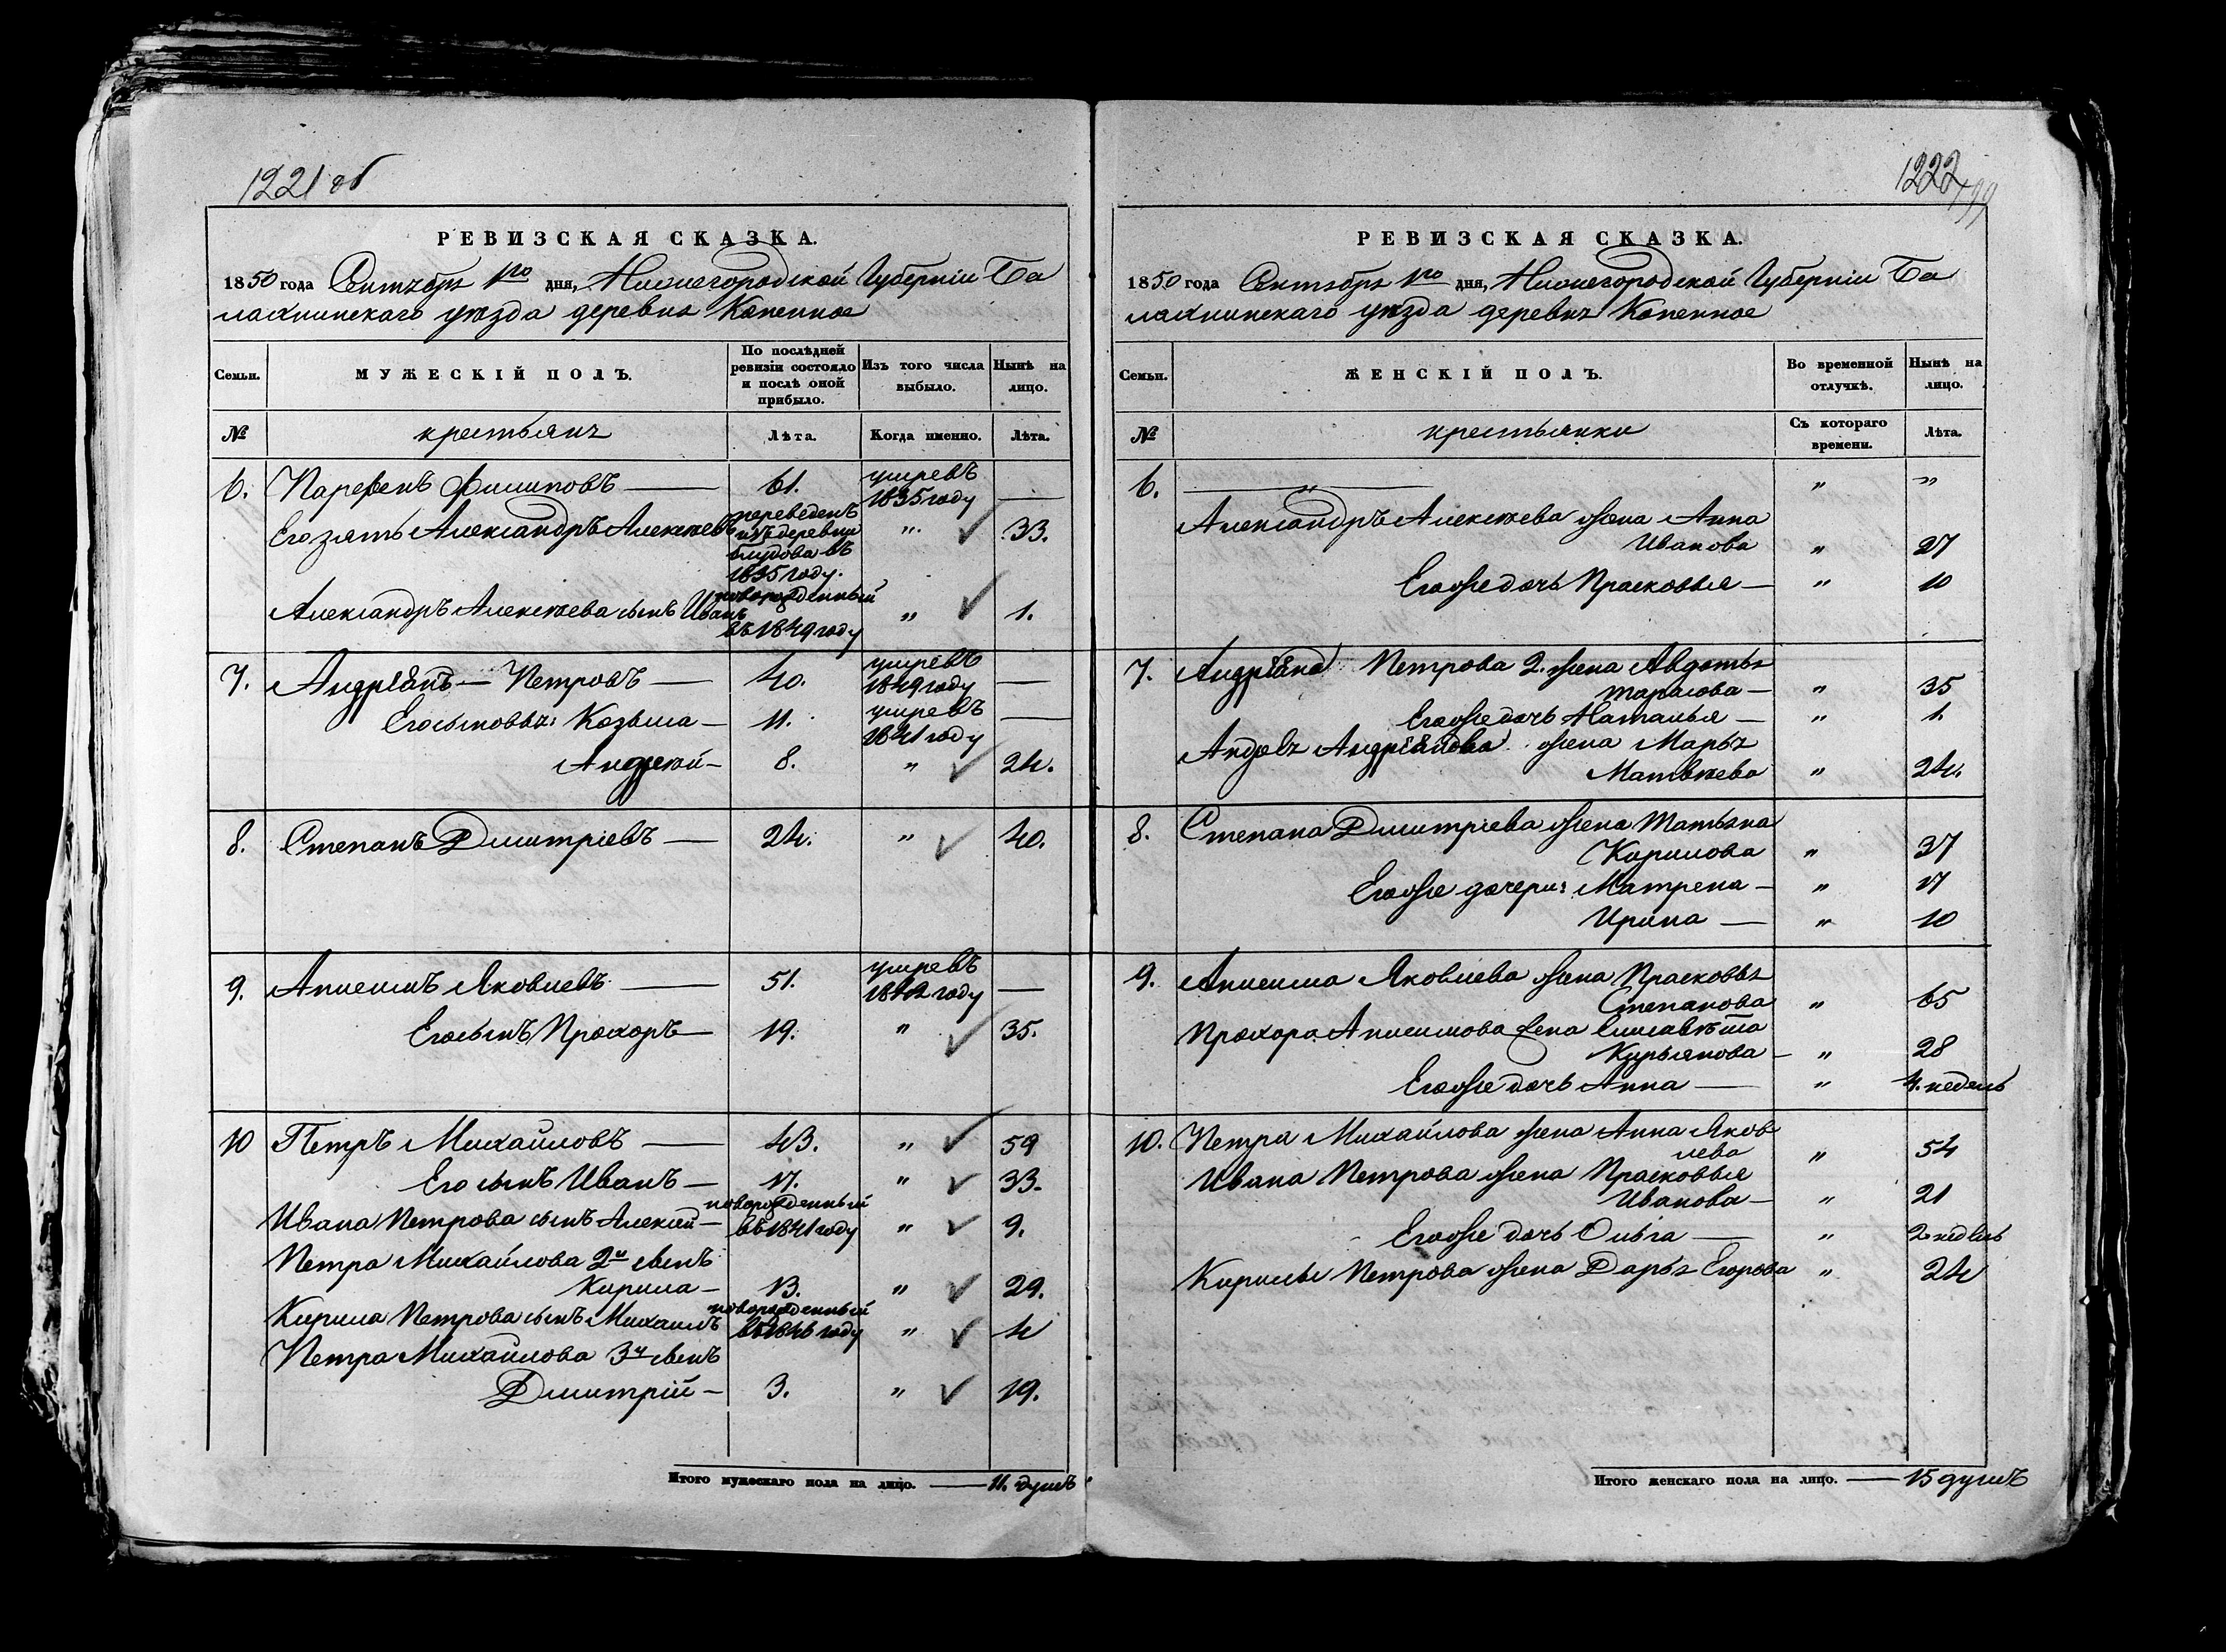 1221 об
РЕВИЗСКАЯ СКАЗКА.
1850 года Сентября 1го дня, Нижегородской Губерніи Ба
лахнинскаго уѣзда деревня Копенное
Семьи. МУЖЕСКІЙ ПОЛЪ. По послѣдней ревизіи состояло и послѣ оной прибыло. Изъ того числа выбыло. Нынѣ на лицо.
№ крестьянъ Лѣта. Когда именно. Лѣта.
6. Парфенъ Филиповъ — 61. умревъ 1835 году —
Его зять Александръ Алексѣевъ переведенъ изъ деревни въ 1835 году. " 33.
Александръ Алексѣева сынъ Иванъ новорожденный въ 1849 году " 1.
7. Андріанъ — Петровъ — 40. умревъ 1849 году —
Его сыновья: Козьма — 11. умревъ 1841 году —
Андрей — 8. " 24.
8. Степанъ Дмитріевъ — 24. " 40.
9. Анисимъ Яковлевъ — 51. умревъ 1842 году —
Его сынъ Прохоръ — 19. " 35.
10 Петръ Михайловъ — 43. " 59
Его сынъ Иванъ — 17. " 33.
Ивана Петрова сынъ Алексей — новорожденный въ 1841 году " 9.
Петра Михайлова 2й сынъ
Кирила — 13. " 29.
Кирила Петрова сынъ Михаилъ новорожденный въ 1846 году " 4
Петра Михайлова 3й сынъ
Дмитрій — 3. " 19.
Итого мужескаго пола на лицо. — 11. душъ
1222
199
РЕВИЗСКАЯ СКАЗКА.
1850 года Сентября 1го дня, Нижегородской Губерніи Ба
лахнинскаго уѣзда деревня Копенное
Семьи. ЖЕНСКІЙ ПОЛЪ. Во временной отлучкѣ. Нынѣ на лицо.
№ крестьянки Съ котораго времени. Лѣта.
6. — " — " "
Александръ Алексѣева жена Анна
Иванова " 27
Его же дочь Прасковья — " 10
7. Андріана Петрова 2. жена Авдотья
Тарасова — " 35
Его же дочь Наталья — " 1.
Андріанова жена Марья
Матвѣева " 24.
8. Степана Дмитріева жена Татьяна
Кирилова " 37
Его же дочери: Матрена — " 17
Ирина — " 10
9. Анисима Яковлева жена Прасковья
Степанова " 65
Прохора Анисимова жена Елисавѣта
Курьянова — " 28
Его же дочь Анна — " 4. недель
10. Петра Михайлова жена Анна Яков
лева " 54
Ивана Петрова жена Прасковья
Иванова — " 21
Его же дочь Ольга — " 2 недель
Кирилы Петрова жена Дарья Егорова " 24
Итого женскаго пола на лицо. — 15 душъ